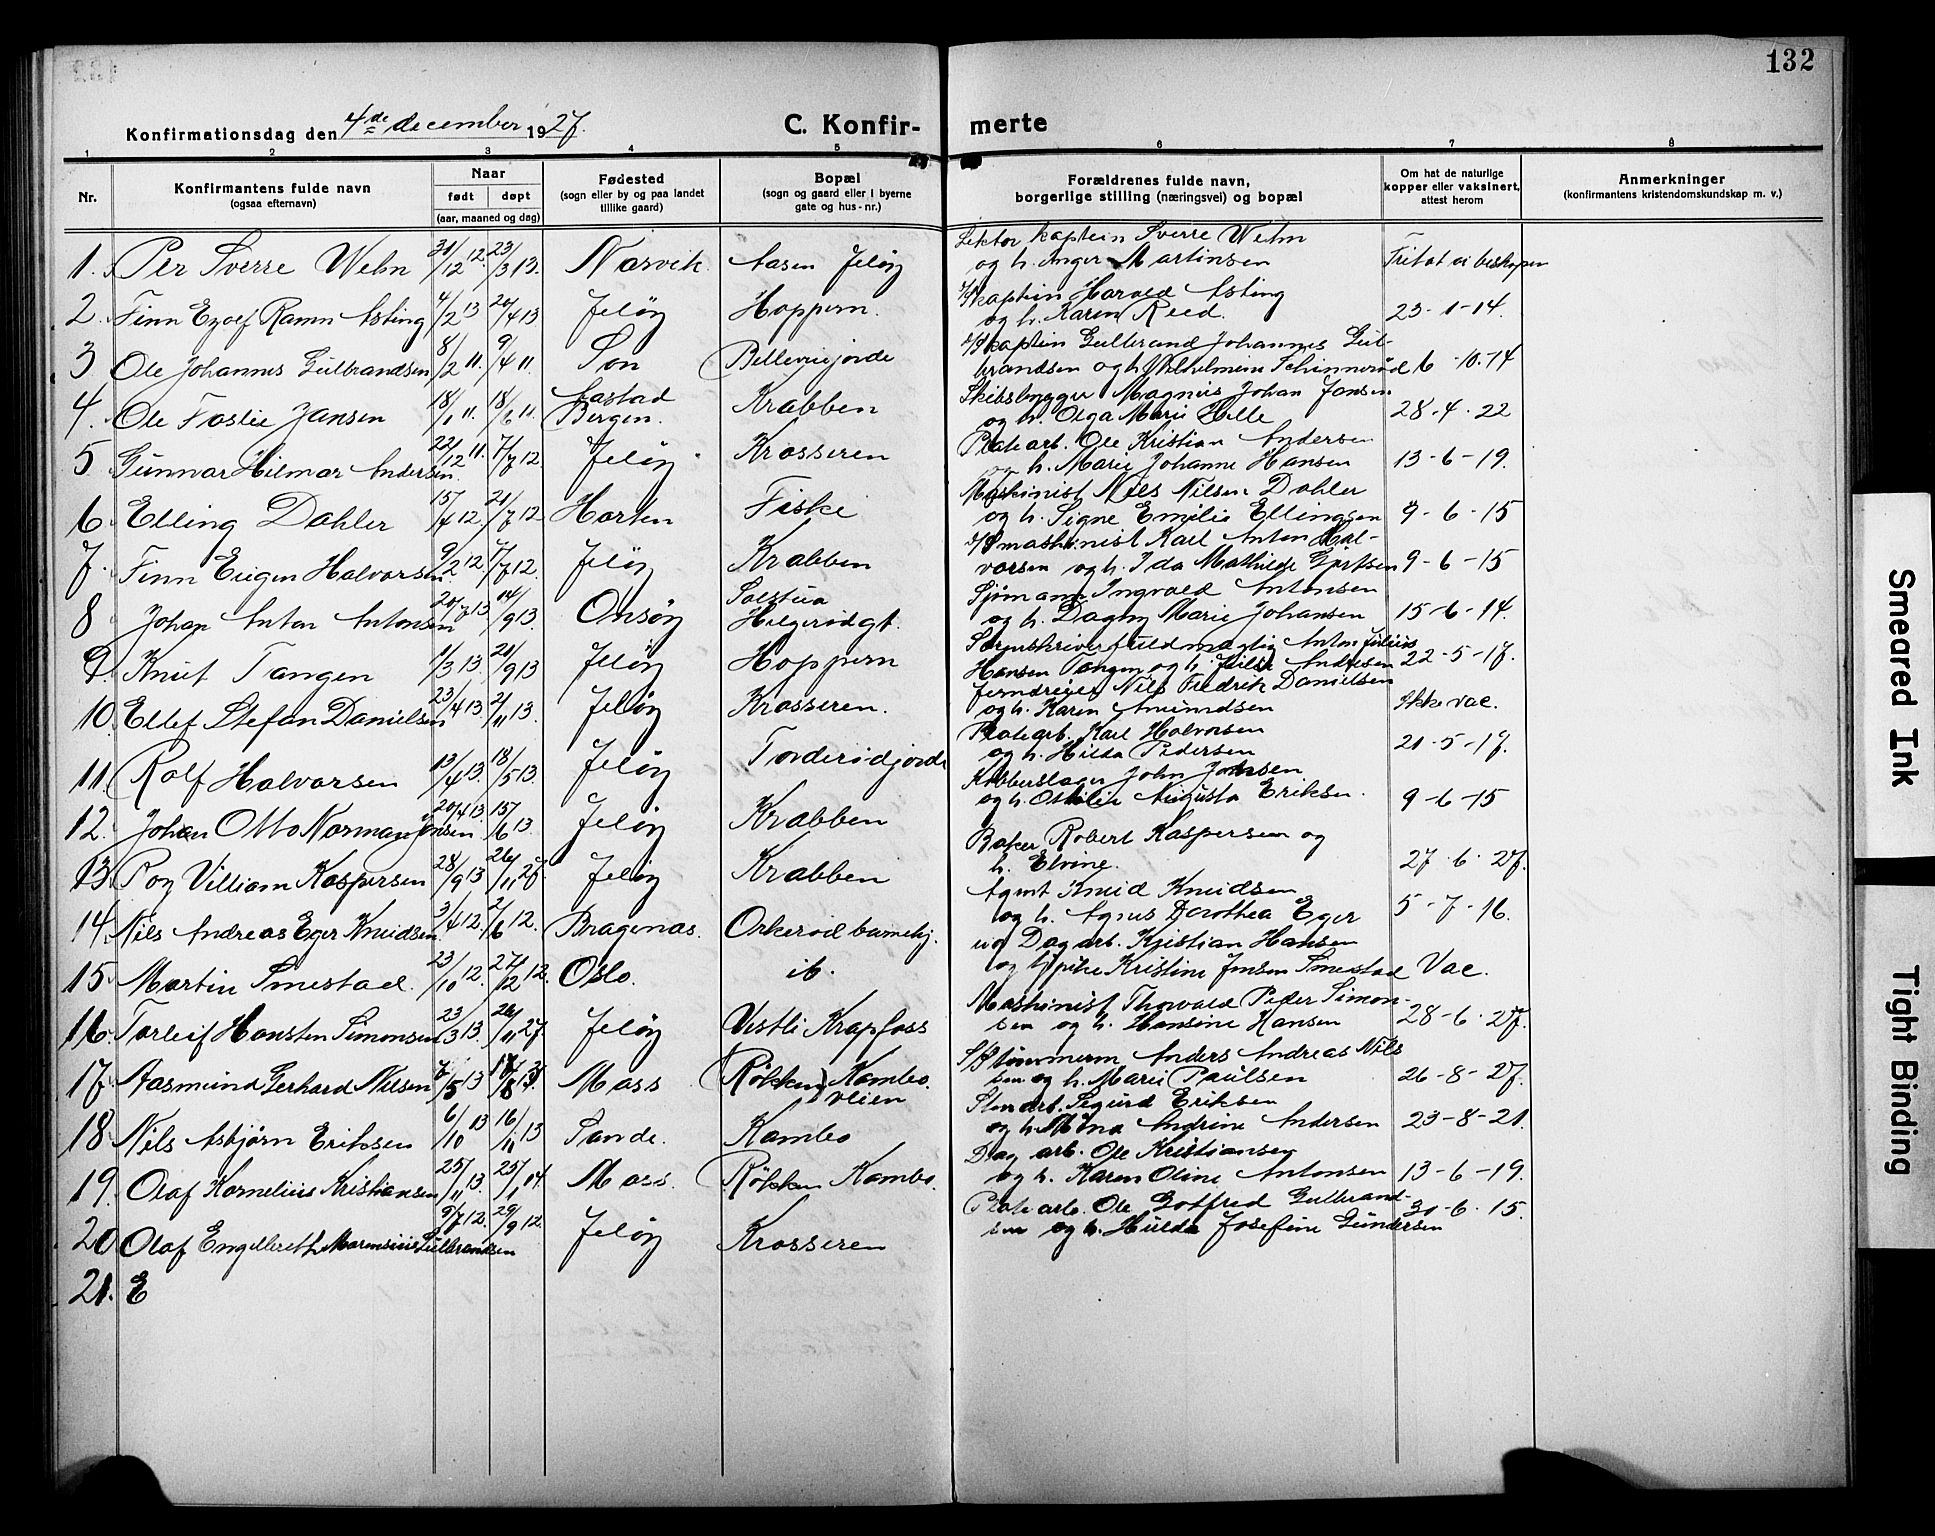 132
Konfirmationsdag den 4de december 1927.
C. Konfirmerte
1 2 3 4 5 6 7 8
Nr.
Konfirmantens fulde navn
(ogsaa efternavn)
Naar
født døpt
(aar, maaned og dag)
Fødested
(sogn eller by og paa landet
tillike gaard)
Bopæl
(sogn og gaard eller i byerne
gate og hus-nr.)
Forældrenes fulde navn,
borgerlige stilling (næringsvei) og bopæl
Om hat de naturlige
kopper eller vaksinert,
attest herom
Anmerkninger
(konfirmantens kristendomskundskap m. v.)
1. Per Sverre Wehn 31/12 12. 23/3 13. Narvik. Aasen Jeløy Lektor kaptein Sverre Wehn
og h. Inger Martinsen Fritat av biskopen
2. Finn Eyolf Ramn Asting 4/2 13 20/4 13 Jeløy Hoppern. S/Skaptein Harald Asting
og h. Karen Reed. 23-1-14.
3 Ole Johannes Gulbrandsen 8/2 11. 9/4 11. Son Bellevuejorde S/Skaptein Gulbrand Johannes Gul-
brandsen og h. Wilhelmine Schinnerød 6-10-14
4. Ole Faslie Jansen 18/1 11. 18/6 11. Aastad
Bergen. Krabben Skibsbygger Magnus Johan Jansen
og h. Olga Marie Hille 28-4-22
5. Gunnar Hilmar Andersen 22/12 11. 7/7 12. Jeløy Krosseren Platearb. Ole Kristian Andersen
og h. Marie Johanne Hansen 13-6-19.
6 Elling Dahler 15/4 12 21/7 12 Horten Fiske Maskinist Nils Nilsen Dahler
og h. Signe Emilie Ellingsen 9-6-15
7. Finn Eugen Halvorsen 9/2 12. 7/7 12. Jeløy Krabben S/Smaskinist Karl Anton Hal-
vorsen og h. Ida Mathilde Gjertsen 9-6-15
8 Johan Anton Antonsen 20/7 13 14/9 13. Onsøy Solstua
Helgerødgt. Sjømann Ingvald Antonsen
og h. Dagny Marie Johansen 15-6-14.
9. Knut Tangen 1/3 13. 21/9 13 Jeløy Hoppern Sorenskriverfuldmægtig Anton Julius
Hansen Tangen og h. Andresen 22-5-17.
10. Ellef Stefan Danielsen 23/4 13. 2/11 13. Jeløy Krosseren. Jerndreier Nils Fredrik Danielsen
og h. Karen Amundsen Ikke vac.
11. Rolf Halvorsen 13/4 13. 18/5 13. Jeløy Torderødjorde Platearb. Karl Halvorsen
og h. Hilda Pedersen 21-5-17.
12. Johan Otto Norman Jonsen 20/4 13. 15/6 13. Jeløy Krabben Kobberslager John Johnsen
og h. Otilie Augusta Eriksen. 9-6-15
13. Roy Villiam Kaspersen 28/9 13 Jeløy Krabben Baker Robert Kaspersen og
h. Elvine. 27-6-27.
14. Nils Andreas Eger Knudsen 3/4 12. 2/6 12. Bragenas. Orkerød barnehj. Agent Knud Knudsen
og h. Agnes Dorothea Eger 5-7-16.
15. Martin Smestad. 23/10 12. 27/12 12. Oslo. ib. Dagarb. Kristian Hansen
og pike Kristine Jensen Smestad Vac.
16. Torleif Hansten Simonsen 23/3 13. 26/11 27. Jeløy Vestli Krapfoss Maskinist Thorvald Peder Simon-
sen og h. Hansine Hansen 28-6-27.
17. Aasmund Gerhard Nilsen Moss Røkken, Kambo.
veien S/Stømmerm Anders Andreas Nils
sen og h. Marie Paulsen 26-8-27.
18. Nils Asbjørn Eriksen 6/10 13 16/11 13 Sande. Kambo Stenarb. Sigurd Eriksen
og h. Mina Andrine Andersen 23-8-21.
19. Olaf Kornelius Kristiansen 25/11 13. 25/1 14. Moss. Røkken Kambo. Dag arb. Ole Kristiansen
og h. Karen Oline Antonsen 13-6-19.
20 Olaf Engelbreth Marensius Gulbrandsen 9/7 12. 29/9 12. Jeløy Krosseren Platearb. Ole Gotfred Gulbrand-
sen og h. Hulda Josefine Gundersen 30-6-15.
21. E
Smeared Ink
Tight Binding